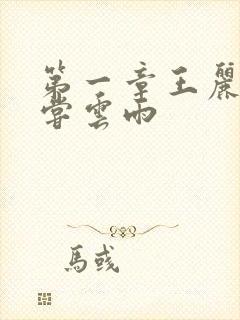 第一章王麗
嘗雲雨
馬彧